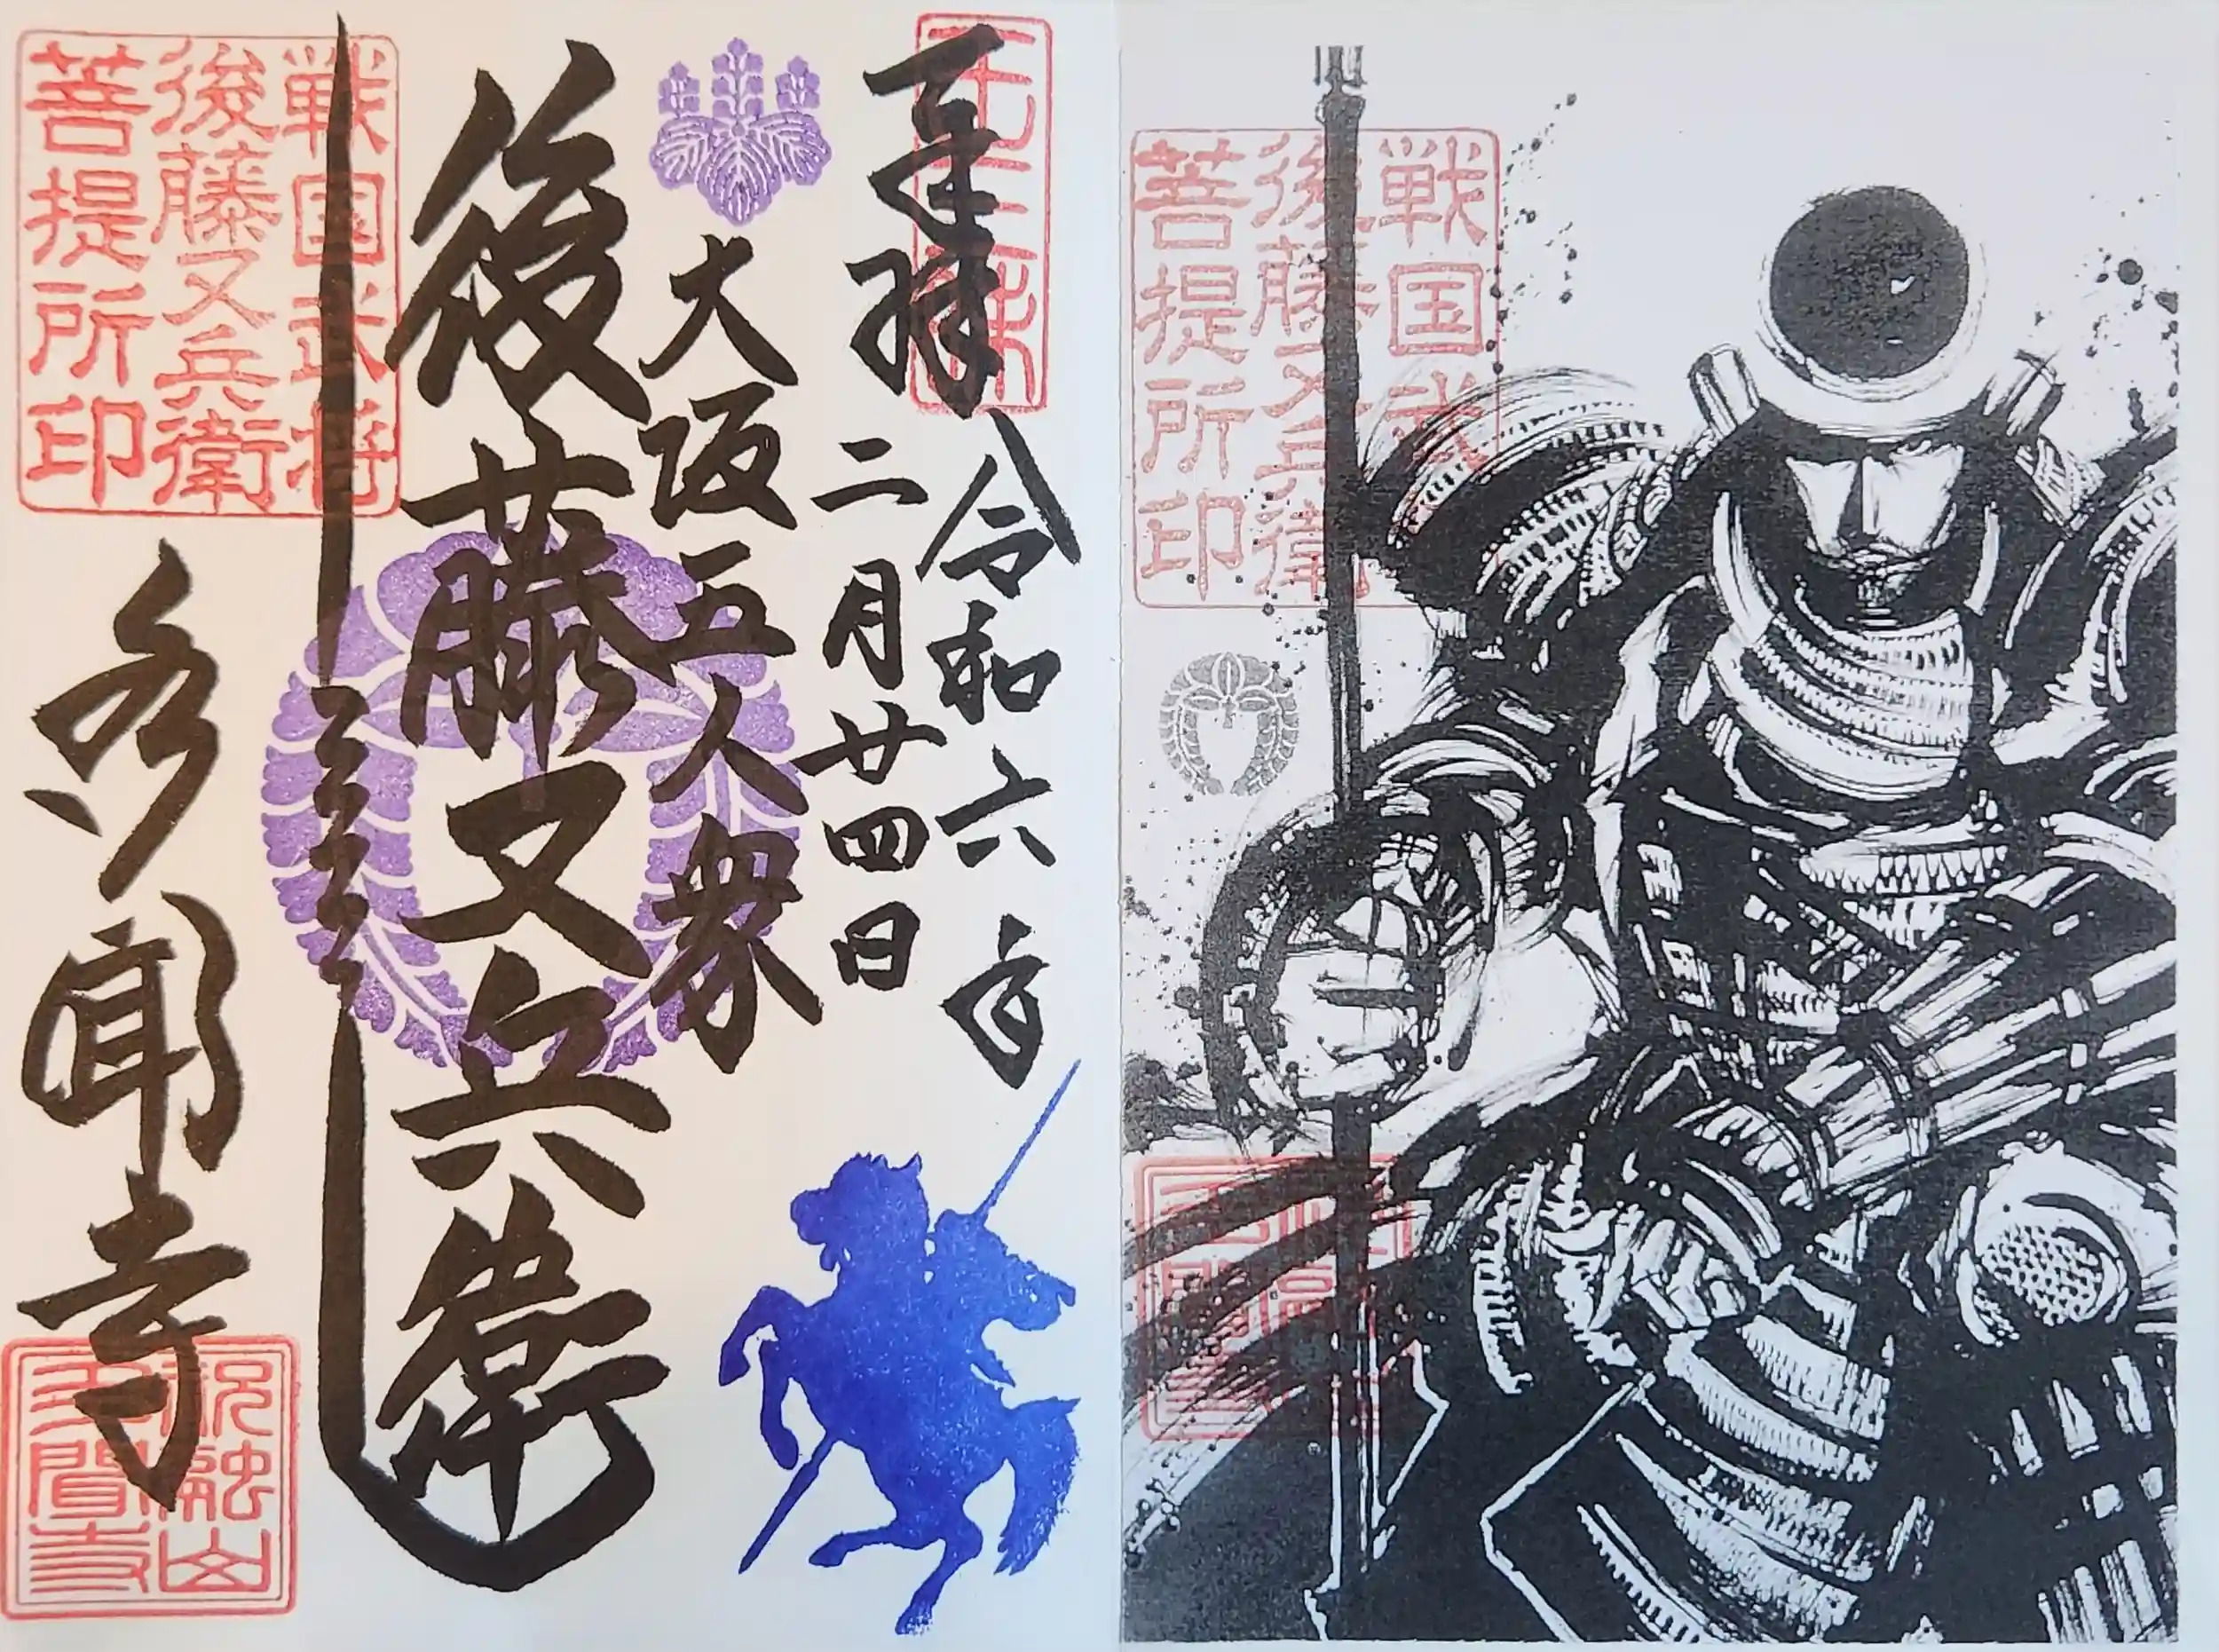 奉拝
令和六年
二月廿四日
大坂五人衆
後藤又兵衛
戦国武将
後藤又兵衛
菩提所印
多聞寺
祝融山
多聞寺
戦国武将
後藤又兵衛
菩提所印